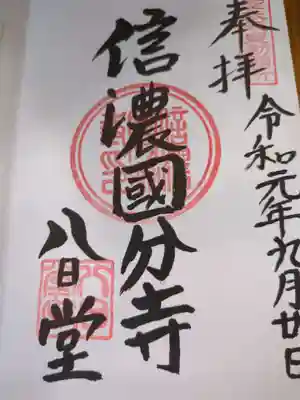 奉拝
令和元年九月廿日
信濃國分寺
八日堂